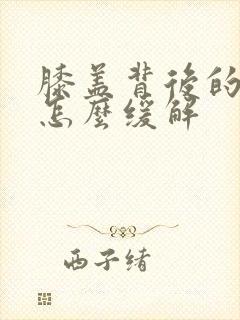 膝盖背后的
怎麽缓解
西子绪